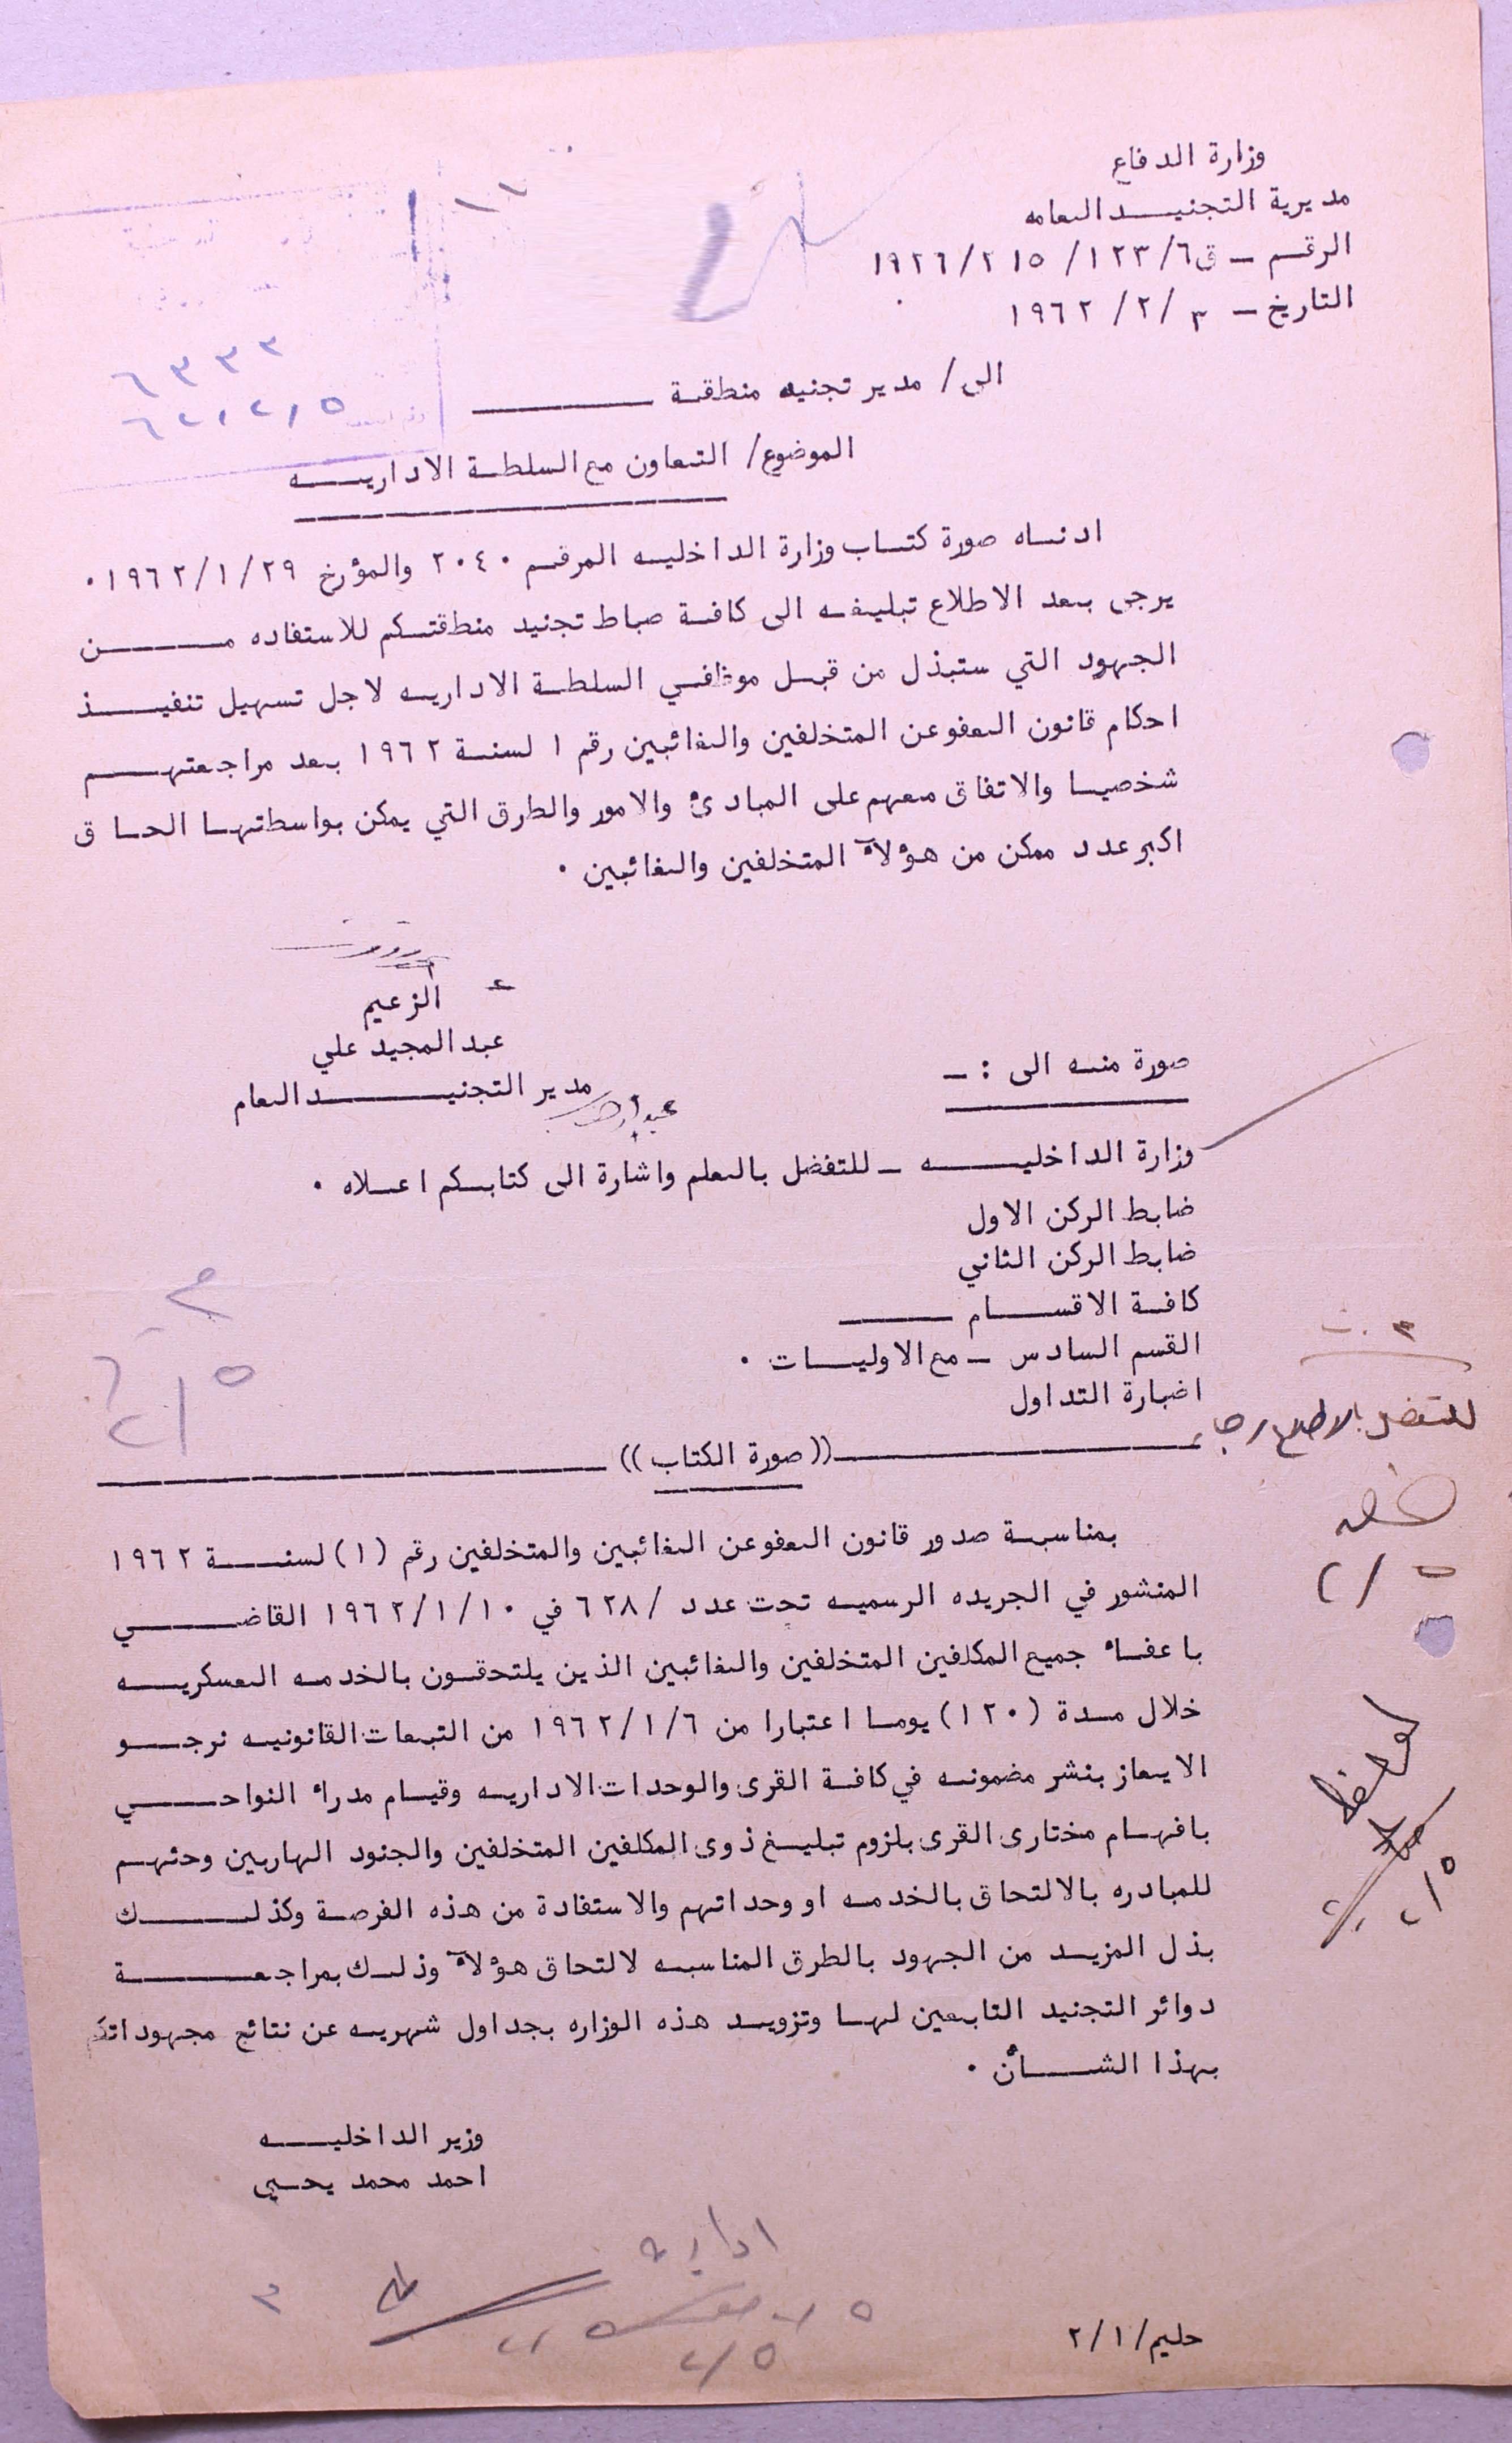 وزارة الدفاع
مديرية التجنيد العامه
الرقم - ق٦/١٢٣/٢١٥/١٩٢٦
التاريخ - ٣/٢/١٩٦٢
٦٣٣٣
٦٢/٢/٥
الى/ مدير تجنيد منطقة
الموضوع/ التعاون مع السلطة الاداريه
ادناه صورة كتاب وزارة الداخليه المرقم ٢٠٤٠ والمؤرخ ١٩٦٢/١/٢٩ ٠
يرجى بعد الاطلاع تبليغه الى كافة ضباط تجنيد منطقتكم للاستفاده من
الجهود التي ستبذل من قبل موظفي السلطة الاداريه لاجل تسهيل تنفيذ
احكام قانون العفو عن المتخلفين والغائبين رقم ١ لسنة ١٩٦٢ بعد مراجعتهم
شخصيا والاتفاق معهم على المبادئ والامور والطرق التي يمكن بواسطتها الحاق
اكبر عدد ممكن من هؤلاء المتخلفين والغائبين ٠
الزعيم
عبد المجيد علي
مدير التجنيد العام
صورة منه الى :-
وزارة الداخليه - للتفضل بالعلم واشارة الى كتابكم اعلاه ٠
ضابط الركن الاول
ضابط الركن الثاني
كافة الاقسام
القسم السادس - مع الاوليات ٠
اضبارة التداول
للتفضل بالاطلاع رجاء
٢/٥
((صورة الكتاب))
بمناسبة صدور قانون العفو عن الغائبين والمتخلفين رقم (١) لسنة ١٩٦٢
المنشور في الجريده الرسميه تحت عدد /٦٢٨ في ١٩٦٢/١/١٠ القاضي
باعفاء جميع المكلفين المتخلفين والغائبين الذين يلتحقون بالخدمه العسكريه
خلال مدة (١٢٠) يوما اعتبارا من ١٩٦٢/١/٦ من التبعات القانونيه نرجو
الايعاز بنشر مضمونه في كافة القرى والوحدات الاداريه وقيام مدراء النواحي
بافهام مختارى القرى بلزوم تبليغ ذوى المكلفين المتخلفين والجنود الهاربين وحثهم
للمبادره بالالتحاق بالخدمه او وحداتهم والاستفادة من هذه الفرصة وكذلك
بذل المزيد من الجهود بالطرق المناسبه لالتحاق هؤلاء وذلك بمراجعة
دوائر التجنيد التابعين لها وتزويد هذه الوزاره بجداول شهريه عن نتائج مجهوداتكم
بهذا الشأن ٠
وزير الداخليه
احمد محمد يحيى
اداريه
٢/٥
حليم/٢/١